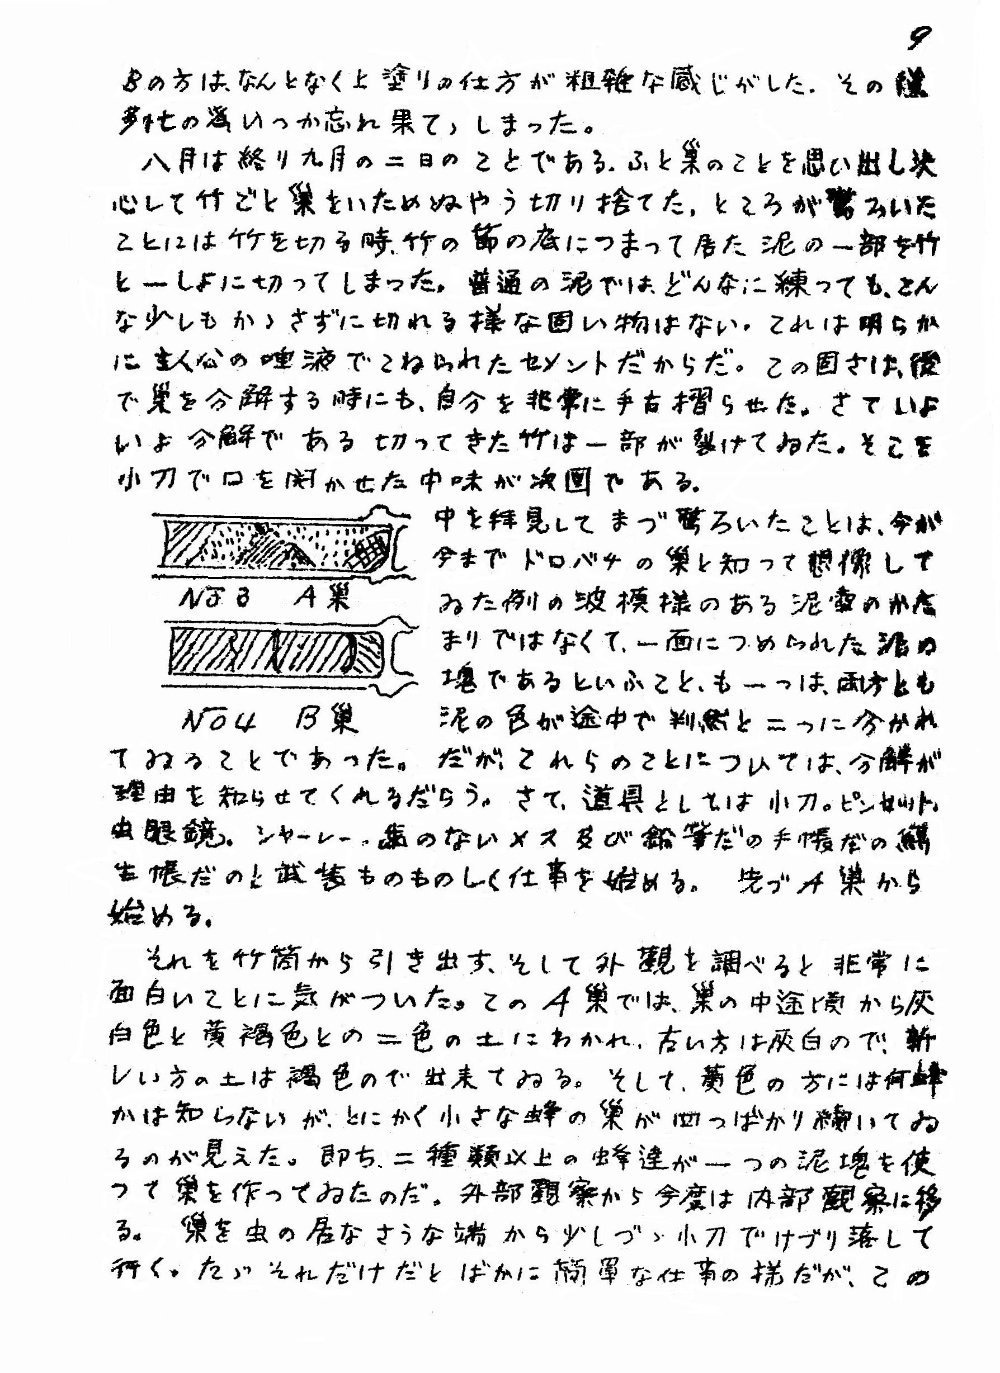 9
Bの方は、なんとなく上塗りの仕方が粗雑な感じがした。その後
多忙の為いつか忘れ果てゝしまった。
八月は終り九月の二日のことである。ふと巣のことを思い出し決
心して竹ごと巣をいためぬやう切り捨てた。ところが驚ろいた
ことには竹を切る時、竹の節の底につまって居た泥の一部を竹
と一しよに切ってしまった。普通の泥では、どんなに練っても、こん
な少しもかゝさずに切れる様な固い物はない。これは明らか
に主人公の唾液でこねられたセメントだからだ。この固さは、後
で巣を分解する時にも、自分を非常に手古摺らせた。さていよ
いよ分解である切ってきた竹は一部が裂けてゐた。そこを
小刀で口を開かせた中味が次図である。
中を拝見してまづ驚ろいたことは、今が
今までドロバチの巣と知って想像して
ゐた例の波模様のある泥の
まりではなくて、一面につめられた泥の
塊であるといふこと、も一つは、両方とも
泥の色が途中で判然と二つに分かれ
No3 A巣
No4 B巣
てゐることであった。だが、これらのことについては、分解が
理由を知らせてくれるだらう。さて、道具としては小刀。ピンセット、
虫眼鏡。シャーレー、歯のないメス及び鉛筆だの手帳だの
生帳だのと武装ものものしく仕事を始める。先づA巣から
始める。
それを竹筒から引き出す、そして外観を調べると非常に
面白いことに気がついた。このA巣では、巣の中途頃から灰
白色と黄褐色との二色の土にわかれ、古い方は灰白ので、新
しい方の土は褐色ので出来てゐる。そして、黄色の方には何蜂
かは知らないが、とにかく小さな蜂の巣が四つばかり続いてゐ
るのが見えた。即ち、二種類以上の蜂達が一つの泥塊を使
つて巣を作ってゐたのだ。外部観察から今度は内部観察に移
る。巣を虫の居なさうな端から少しづゝ小刀でけづり落して
行く。たゞそれだけだとばかに簡単な仕事の様だが、この